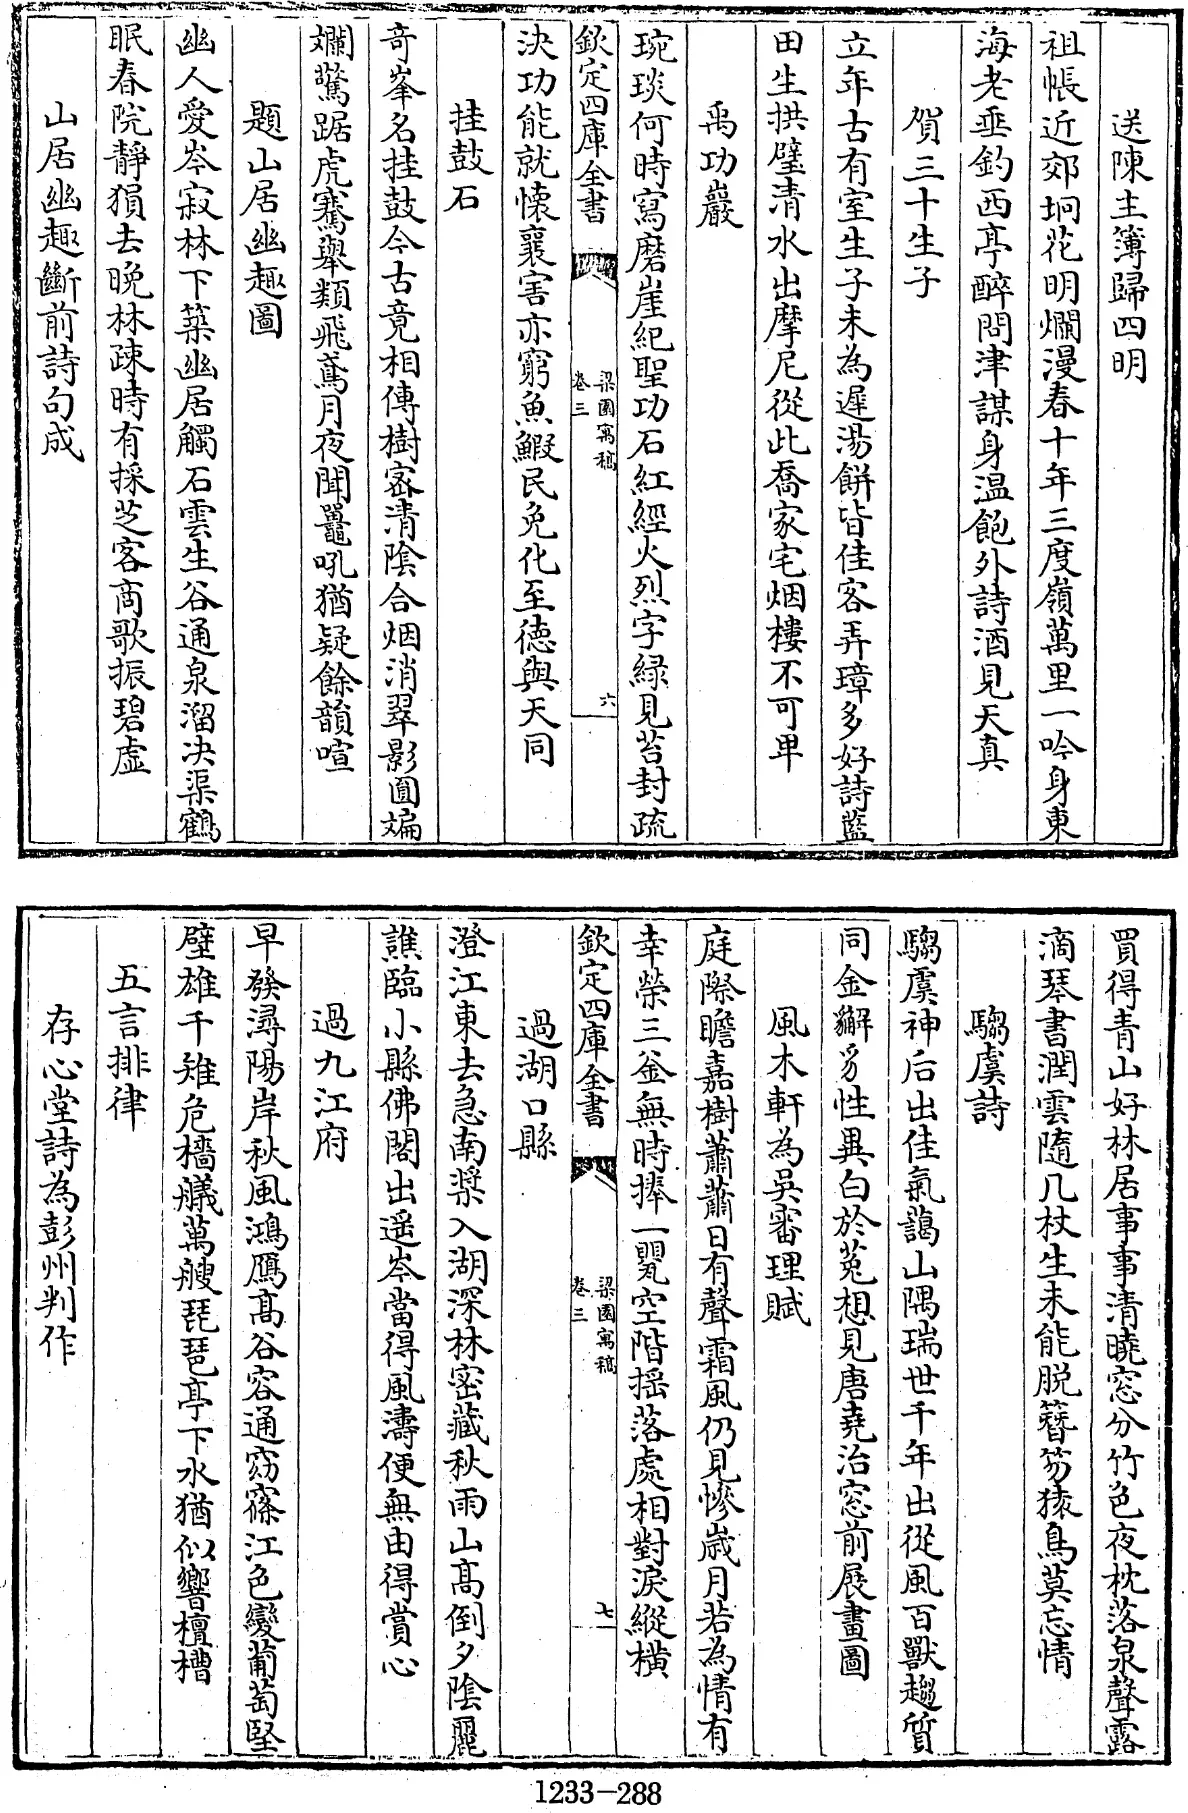 送陳主簿歸四明
祖帳近郊坰花明爛漫春十年三度嶺萬里一吟身東
海老垂釣西亭醉問津謀身温飽外詩酒見天真
賀三十生子
立年古有室生子未為遲湯餅皆佳客弄璋多好詩藍
田生拱璧清水出摩尼從此喬家宅烟樓不可卑
禹功巖
琬琰何時寫磨崖紀聖功石紅經火烈字緑見苔封疏
欽定四庫全書
梁園寓稿
卷三
六
決功能就懷襄害亦窮魚鰕民免化至徳與天同
挂鼓石
奇峯名挂鼓今古竟相傳樹宻清陰合烟消翠影圓斒
斕驚踞虎騫舉類飛鳶月夜聞鼉吼猶疑餘韻喧
題山居幽趣圖
幽人愛岑寂林下築幽居觸石雲生谷通泉溜决渠鶴
眠春院靜猿去晚林疎時有採芝客商歌振碧虛
山居幽趣斷前詩句成
買得青山好林居事事清曉窓分竹色夜枕落泉聲露
滴琴書潤雲隨几杖生未能脱簪笏猿鳥莫忘情
騶虞詩
騶虞神后出佳氣藹山隅瑞世千年出從風百獸趨質
同金獬豸性異白於菟想見唐堯治窓前展畫圖
風木軒為吳審理賦
庭際瞻嘉樹蕭蕭日有聲霜風仍見慘歳月若為情有
幸榮三釡無時捧一甖空階揺落處相對淚縱横
欽定四庫全書
梁園寓稿
卷三
七
過湖口縣
澄江東去急南槳入湖深林密藏秋雨山高倒夕陰麗
譙臨小縣佛閣出遥岑當得風濤便無由得賞心
過九江府
早發潯陽岸秋風鴻鴈髙谷容通窈窱江色變葡萄堅
壁雄千雉危檣艤萬艘琵琶亭下水猶似響檀槽
五言排律
存心堂詩為彭州判作
1233-288